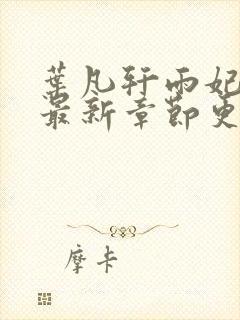 葉凡轩雨妃
最新章節更
摩卡